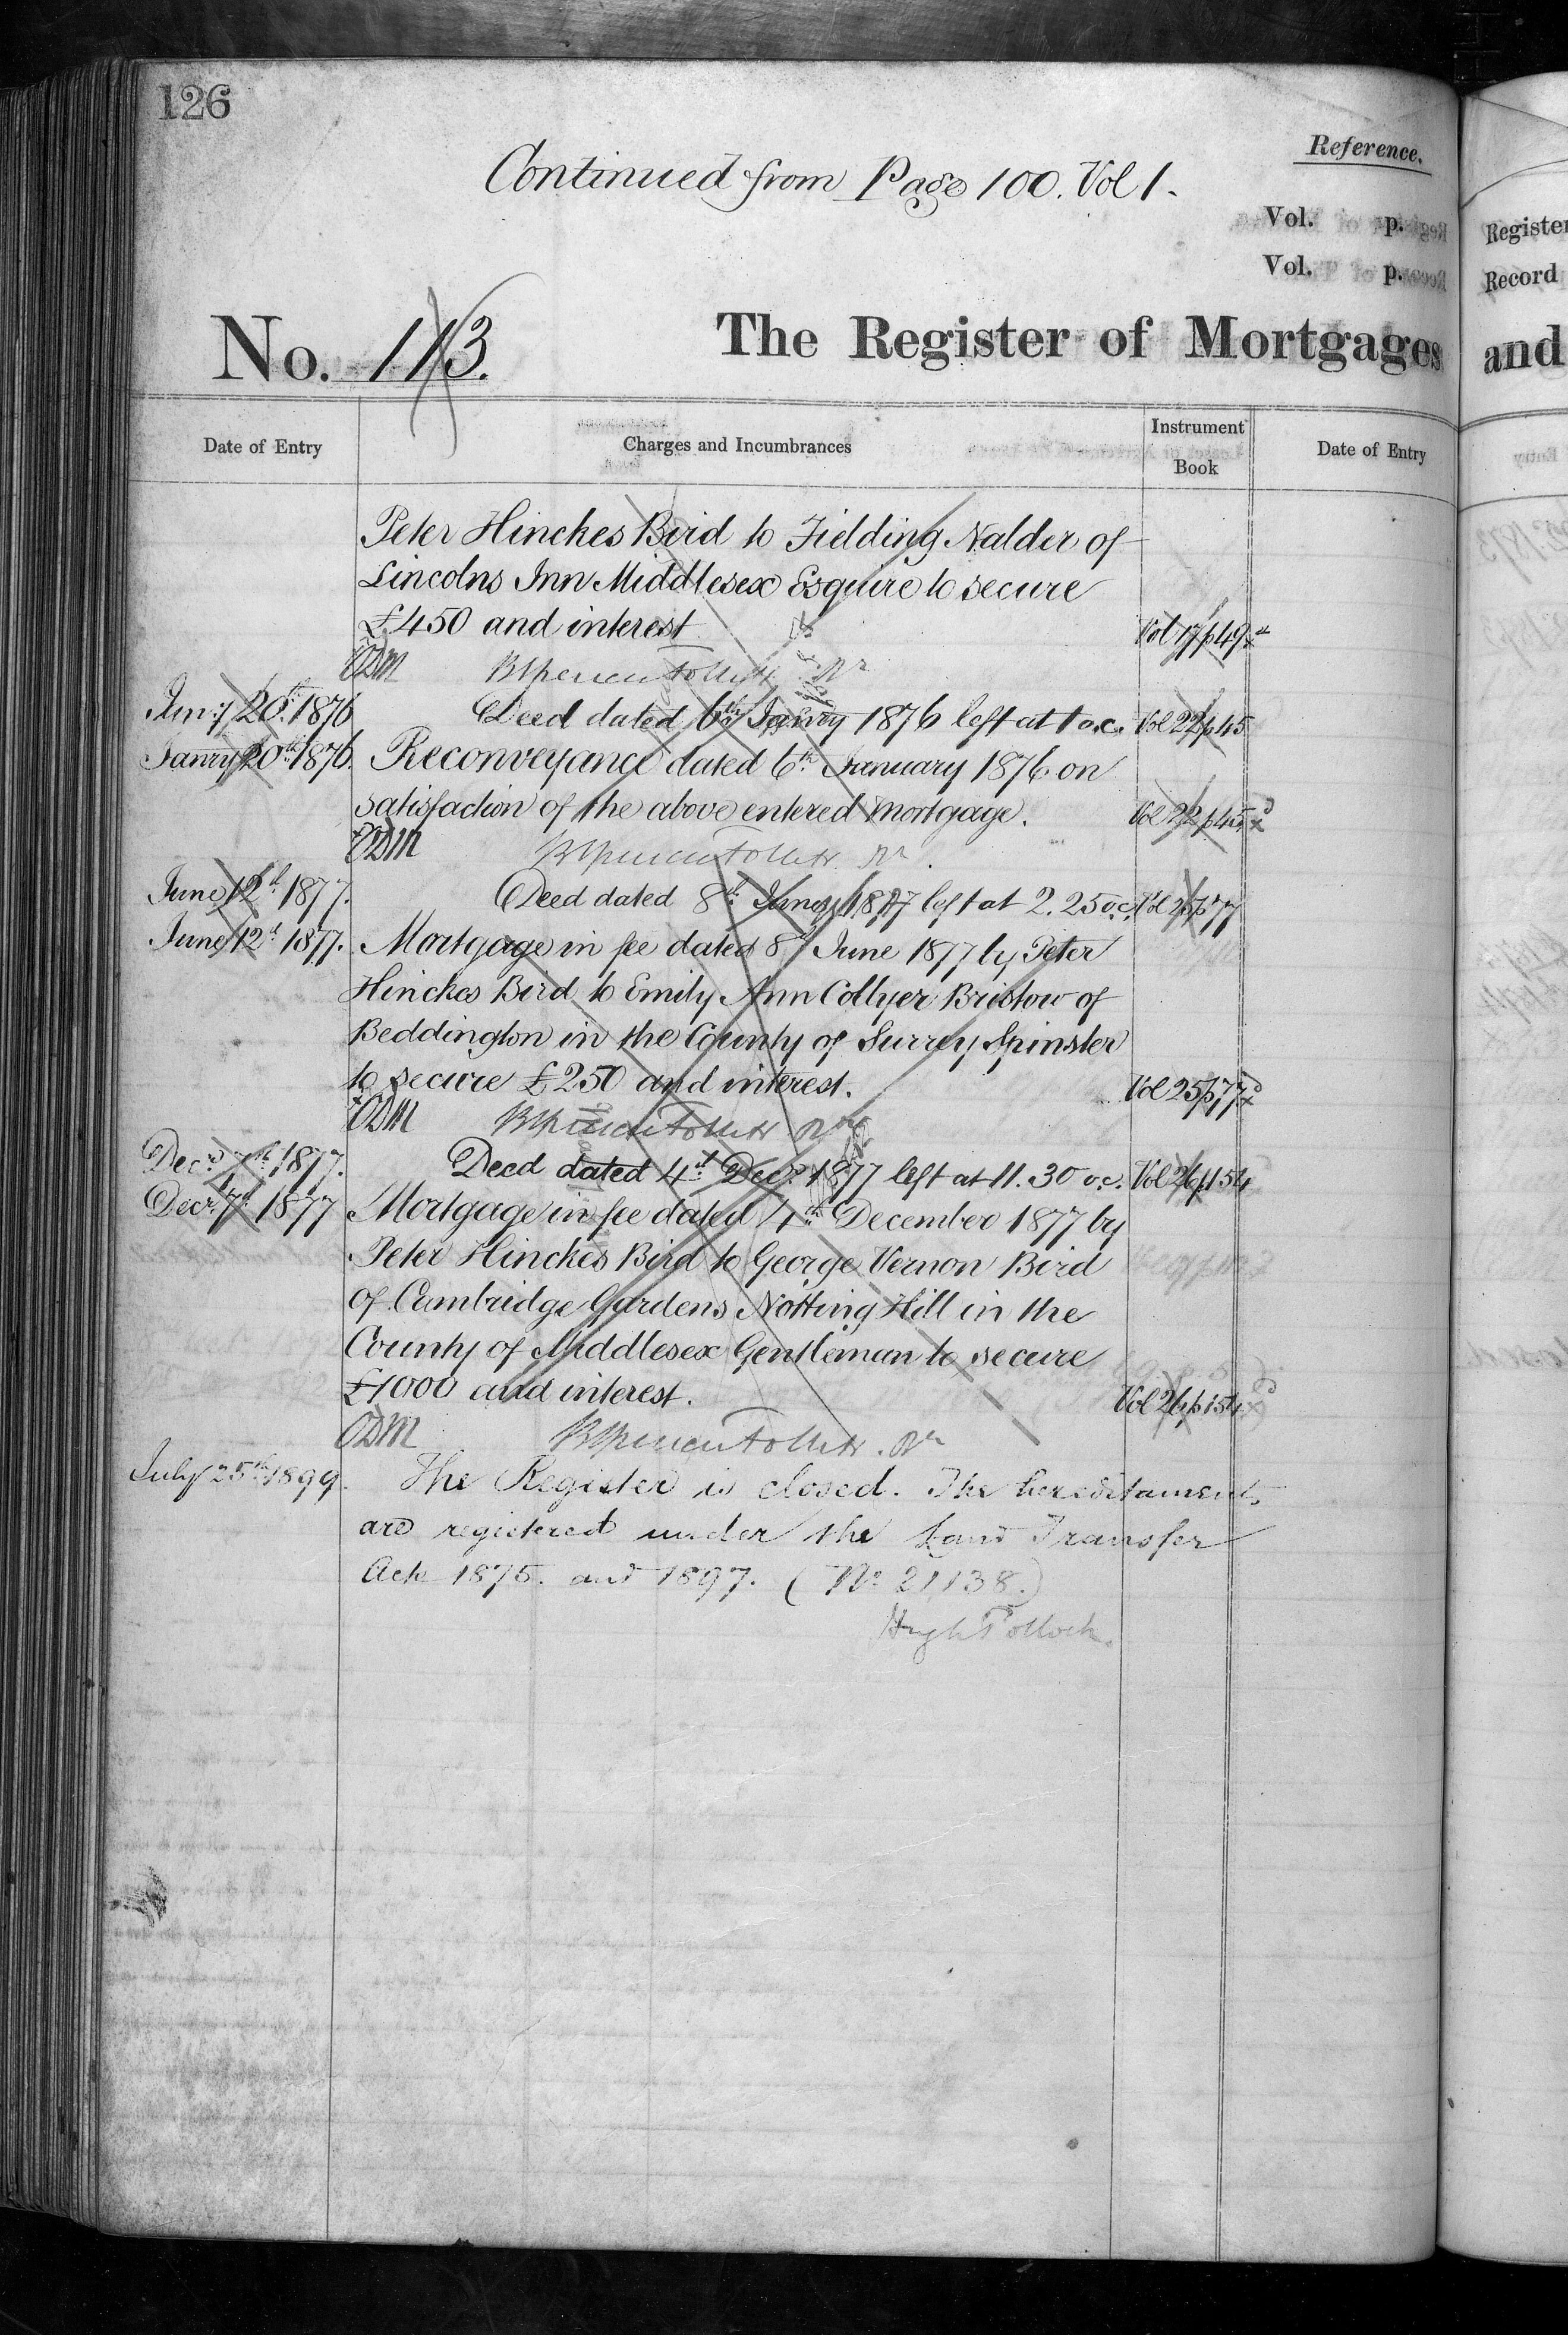 126
Reference.
Continued from Page 100. Vol 1.
Vol. p.
Vol. p.
Register
Record
No. 113.
The Register of Mortgages
and
Date of Entry
Charges and Incumbrances
Instrument
Book
Date of Entry
Peter Hinckes Bird to Fielding Nalder of
Lincolns Inn Middlesex Esquire to secure
£450 and interest Vol 17 p 49
ODM
Jany 20th 1876 Deed dated 6th Janry 1876 left at 1 o.c. Vol 22 p 45
Janry 20th 1876. Reconveyance dated 6th January 1876 on
satisfaction of the above entered mortgage. Vol 22 p 45
ODM
June 12th 1877. Deed dated 8th June 1877 left at 2.25 o.c. Vol 25 p 77
June 12th 1877. Mortgage in fee dated 8th June 1877 by Peter
Hinckes Bird to Emily Ann Collyer Bristow of
Beddington in the County of Surrey Spinster
to secure £250 and interest. Vol 25 p 77
ODM
Decr 7th 1877. Deed dated 4th Decr 1877 left at 11.30 o.c. Vol 26 p 154
Decr 7th 1877 Mortgage in fee dated 4th December 1877 by
Peter Hinckes Bird to George Vernon Bird
of Cambridge Gardens Notting Hill in the
County of Middlesex Gentleman to secure
£1000 and interest. Vol 26 p 154
ODM
July 25th 1899. The Register is closed. The hereditaments
are registered under the Land Transfer
Acts 1875. and 1897. (No 21138.)
Hugh Pollock.